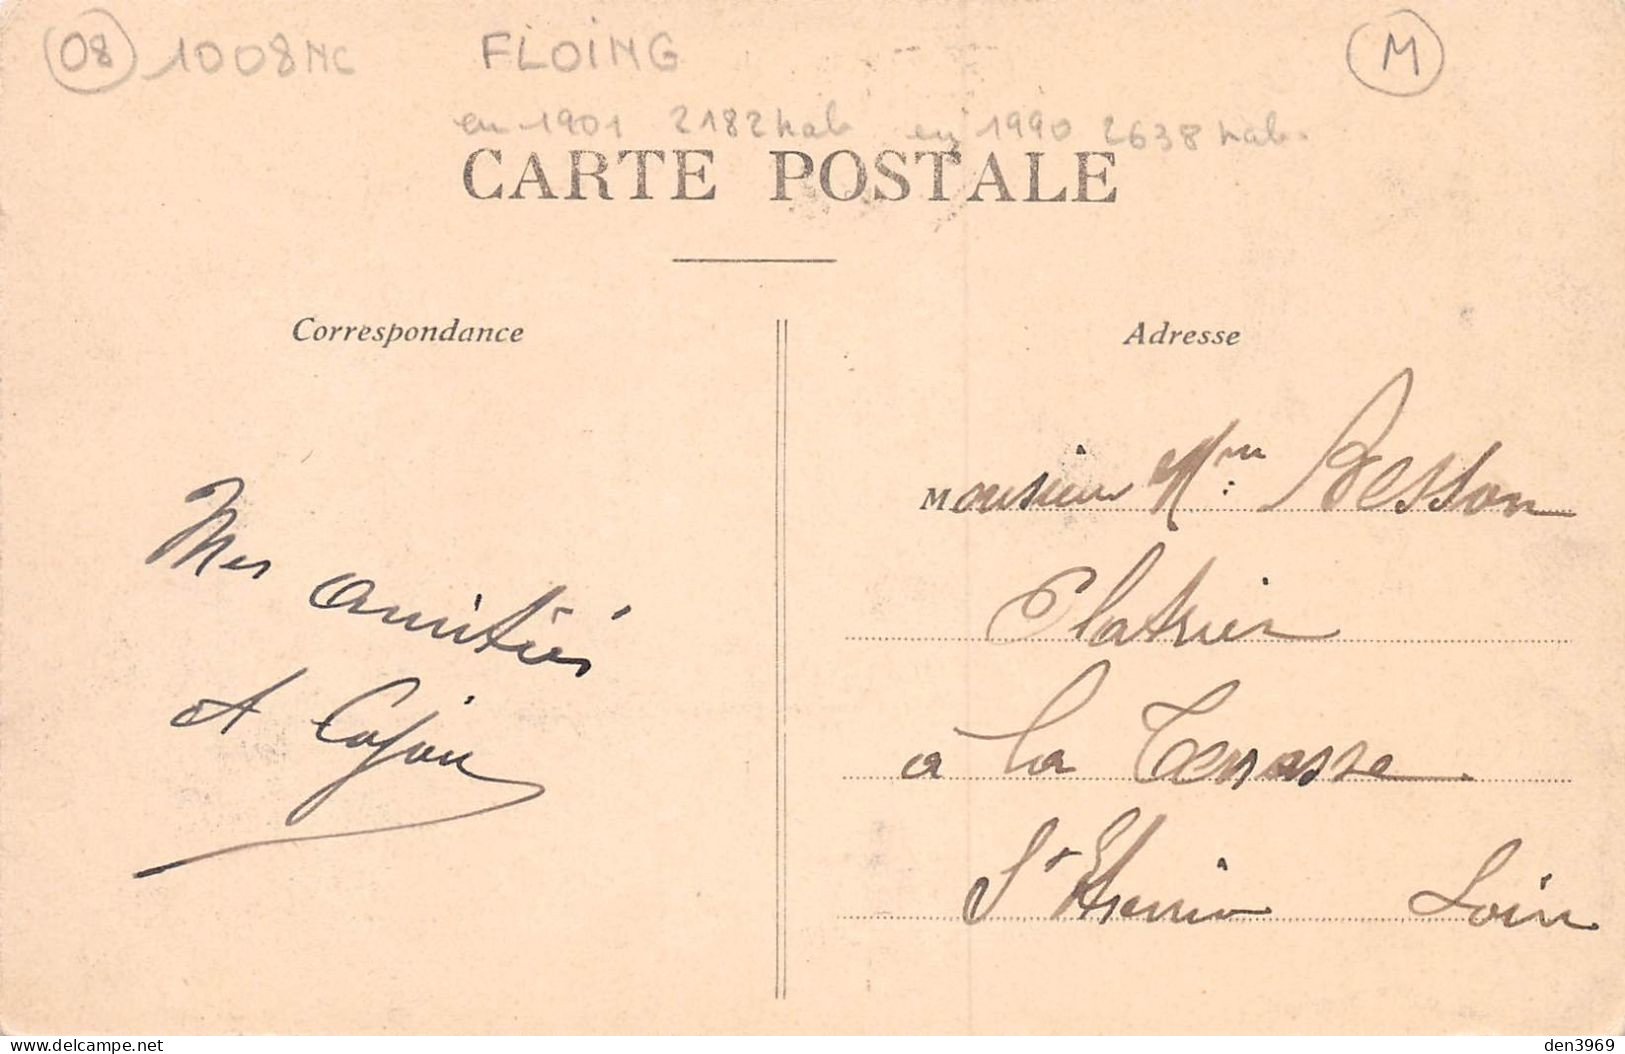 08 1008NC FLOING M
en 1901 2182 hab en 1990 2638 hab.
CARTE POSTALE
Correspondance
Adresse
Mes amitiés
A
Monsieur Besson
Platrier
à la Terrasse.
St Etienne Loire
Delcampe.net
den3969